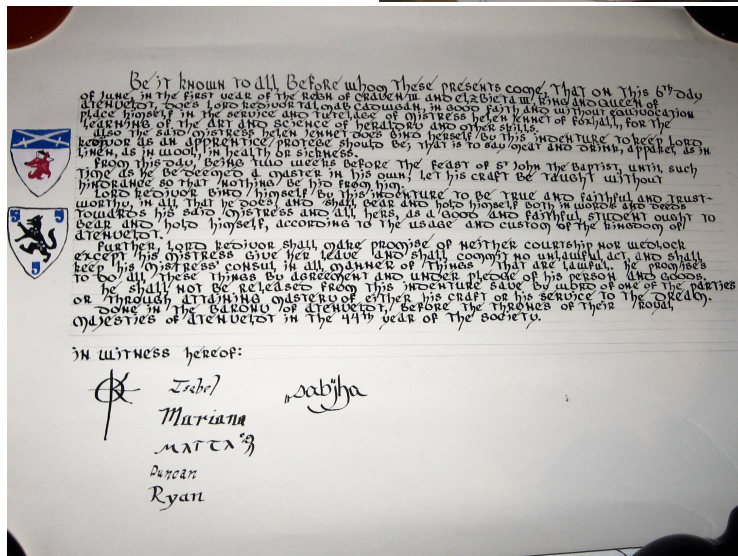 Be it known to all before whom these presents come, that on this 6th day
of June, in the first year of the reign of Craven III and Elzbieta III, King and Queen of
Atenveldt, does Lord Redivor tal mab Cadwgan, in good faith and without equivocation
place himself in the service and tutelage of Mistress Helen Jennet of Foxhall, for the
learning of the art and science of heraldry and other skills.
also the said Mistress Helen Jennet does bind herself by this indenture to keep Lord
Redivor as an apprentice/protege should be; that is to say meat and drink, apparel as in
linen, as in wool, in health or sickness.
from this day, being two weeks before the feast of St John the Baptist, until such
time as he be deemed a master in his own, let his craft be taught without
hindrance so that nothing be hid from him.
Lord Redivor bind himself by this indenture to be true and faithful and trust-
worthy, in all that he does, and shall bear and hold himself both in words and deeds
towards his said mistress and all hers, as a good and faithful student ought to
bear and hold himself, according to the usage and custom of the kingdom of
Atenveldt.
Further, Lord Redivor shall make promise of neither courtship nor wedlock
except his mistress give her leave and shall commit no unlawful act, and shall
keep his mistress' consul in all manner of things that are lawful. he promises
to do all these things by agreement and under pledge of his person and goods.
he shall not be released from this indenture save by word of one of the parties
or through attaining mastery of either his craft or his service to the Dream.
Done in the Barony of Atenveldt, before the thrones of their royal
majesties of Atenveldt in the 44th year of the Society.
in witness hereof:
Isabel
Sabiha
Mariana
Duncan
Ryan